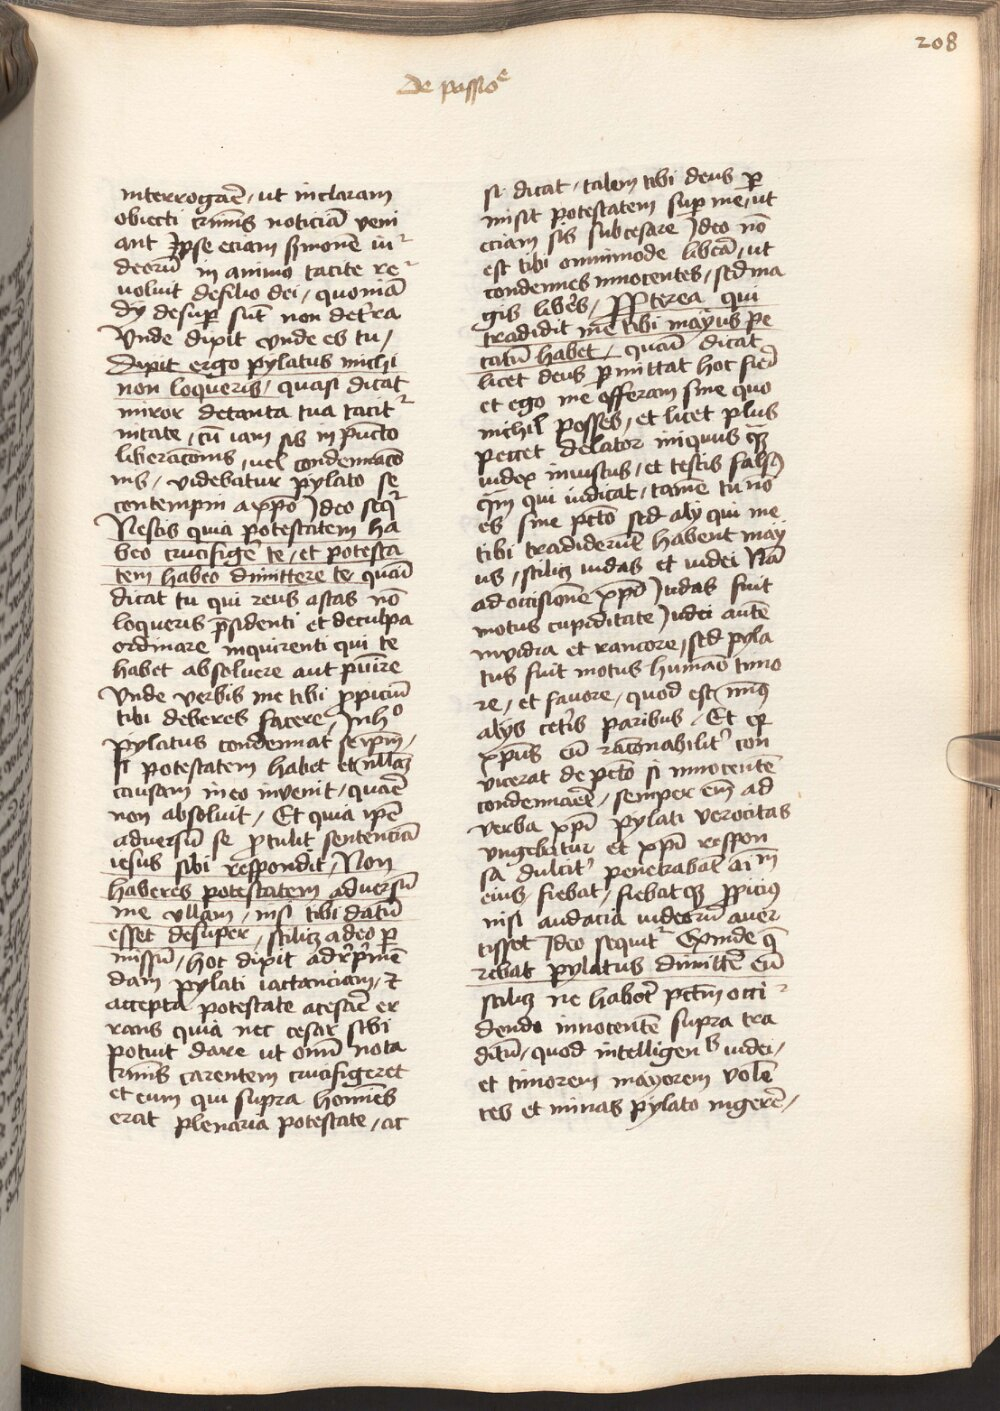 208
de passioe
interrogarē / ut in claram
obiecti crimīs noticiā veni
ant Ipse eciam sermonē iu
deorū in animo tacite re
uoluit de filio dei / quoniā
dij desuꝑ sūt non de tr̄ra
Unde dixit unde es tu /
dixit ergo pylatus michi
non loqueris / quasi dicat
miror de tanta tua tacit
nitate / cū iam sis in pūcto
liberac̄onis / uel condemnac̄o
nis / videbatur pylato se
contempni a xp̄o Ideo seqr
Nescis quia potestatem ha
beo crucifige te / et potesta
tem habeo dimittere te quasi
dicat tu qui reus astas nō
loqueris p̄sidenti et de culpa
ordinare inquirenti qui te
habet absoluere aut puīre
Unde verbis me tibi ꝓpiciū
tibi deberes facere / In hᵒ
pylatus condemnat se ip̄m /
si potestatem habet et nullaꝫ
causam in eo invenit / quarē
non absoluit / Et quia ip̄e
adversū se ꝓtulit sentenciā
iesus sibi respondit / Non
haberes potestatem adversū
me ullam / nisi tibi datū
esset desuper / scilicꝫ a deo ꝑ
missū / hoc dixit ad rep̄mē
dam pylati iactanciam / et
accepta potestate a cesare er
rans quia nec cesar sibi
potuit dare ut omī nota
crimīs carentem crucifigeret
et eum qui supra homīes
erat plenaria potestate / ac
si dicat / talem tibi deus ꝑ
misit potestatem suꝑ me / ut
eciam sis sub cesare Ideo nō
est tibi omnimode liberā / ut
condemnes innocentes / sed ma
gis liberes / Propterea qui
tradidit me tibi mayus pe
catū habet / quasi dicat
licet deus ꝑmittat hoc fieri
et ego me offeram sine quo
nichil posses / et licet plus
peccet delator iniquus qꝫ
iudex iniustus / et testis falsꝯ
qm̄ qui iudicat / tamē tu nō
es sine pctō sed alij qui me
tibi tradiderūt habent may
us / scilicꝫ iudas et iudei Nā
ad occisionē xp̄i Iudas fuit
motus cupiditate Iudei autē
invidia et rancore / sed pyla
tus fuit motus humāo timo
re / et favore / quod est minꝰ
alijs cetīs paribus / Et qꝫ
xp̄us eū rac̄onabilit̄ con
vicerat de pctō si innocentē
condemnarē / semper em̄ ad
verba xp̄i pylati verocitas
ungebatur et xp̄i respon
sa dulcit̄ penetrabāt aīm
eius / fiebat / fiebatqꝫ ꝓpicius
nisi audacia iudeorū aver
tisset Ideo sequitᵣ Exinde q̄
rebat pylatus dimittē eū
scilicꝫ ne habet pctm̄ occi
dendo innocentē supra tra
ditū / quod intelligentes iudei /
et timorem mayorem volē
tes et minas pylato ingerē /